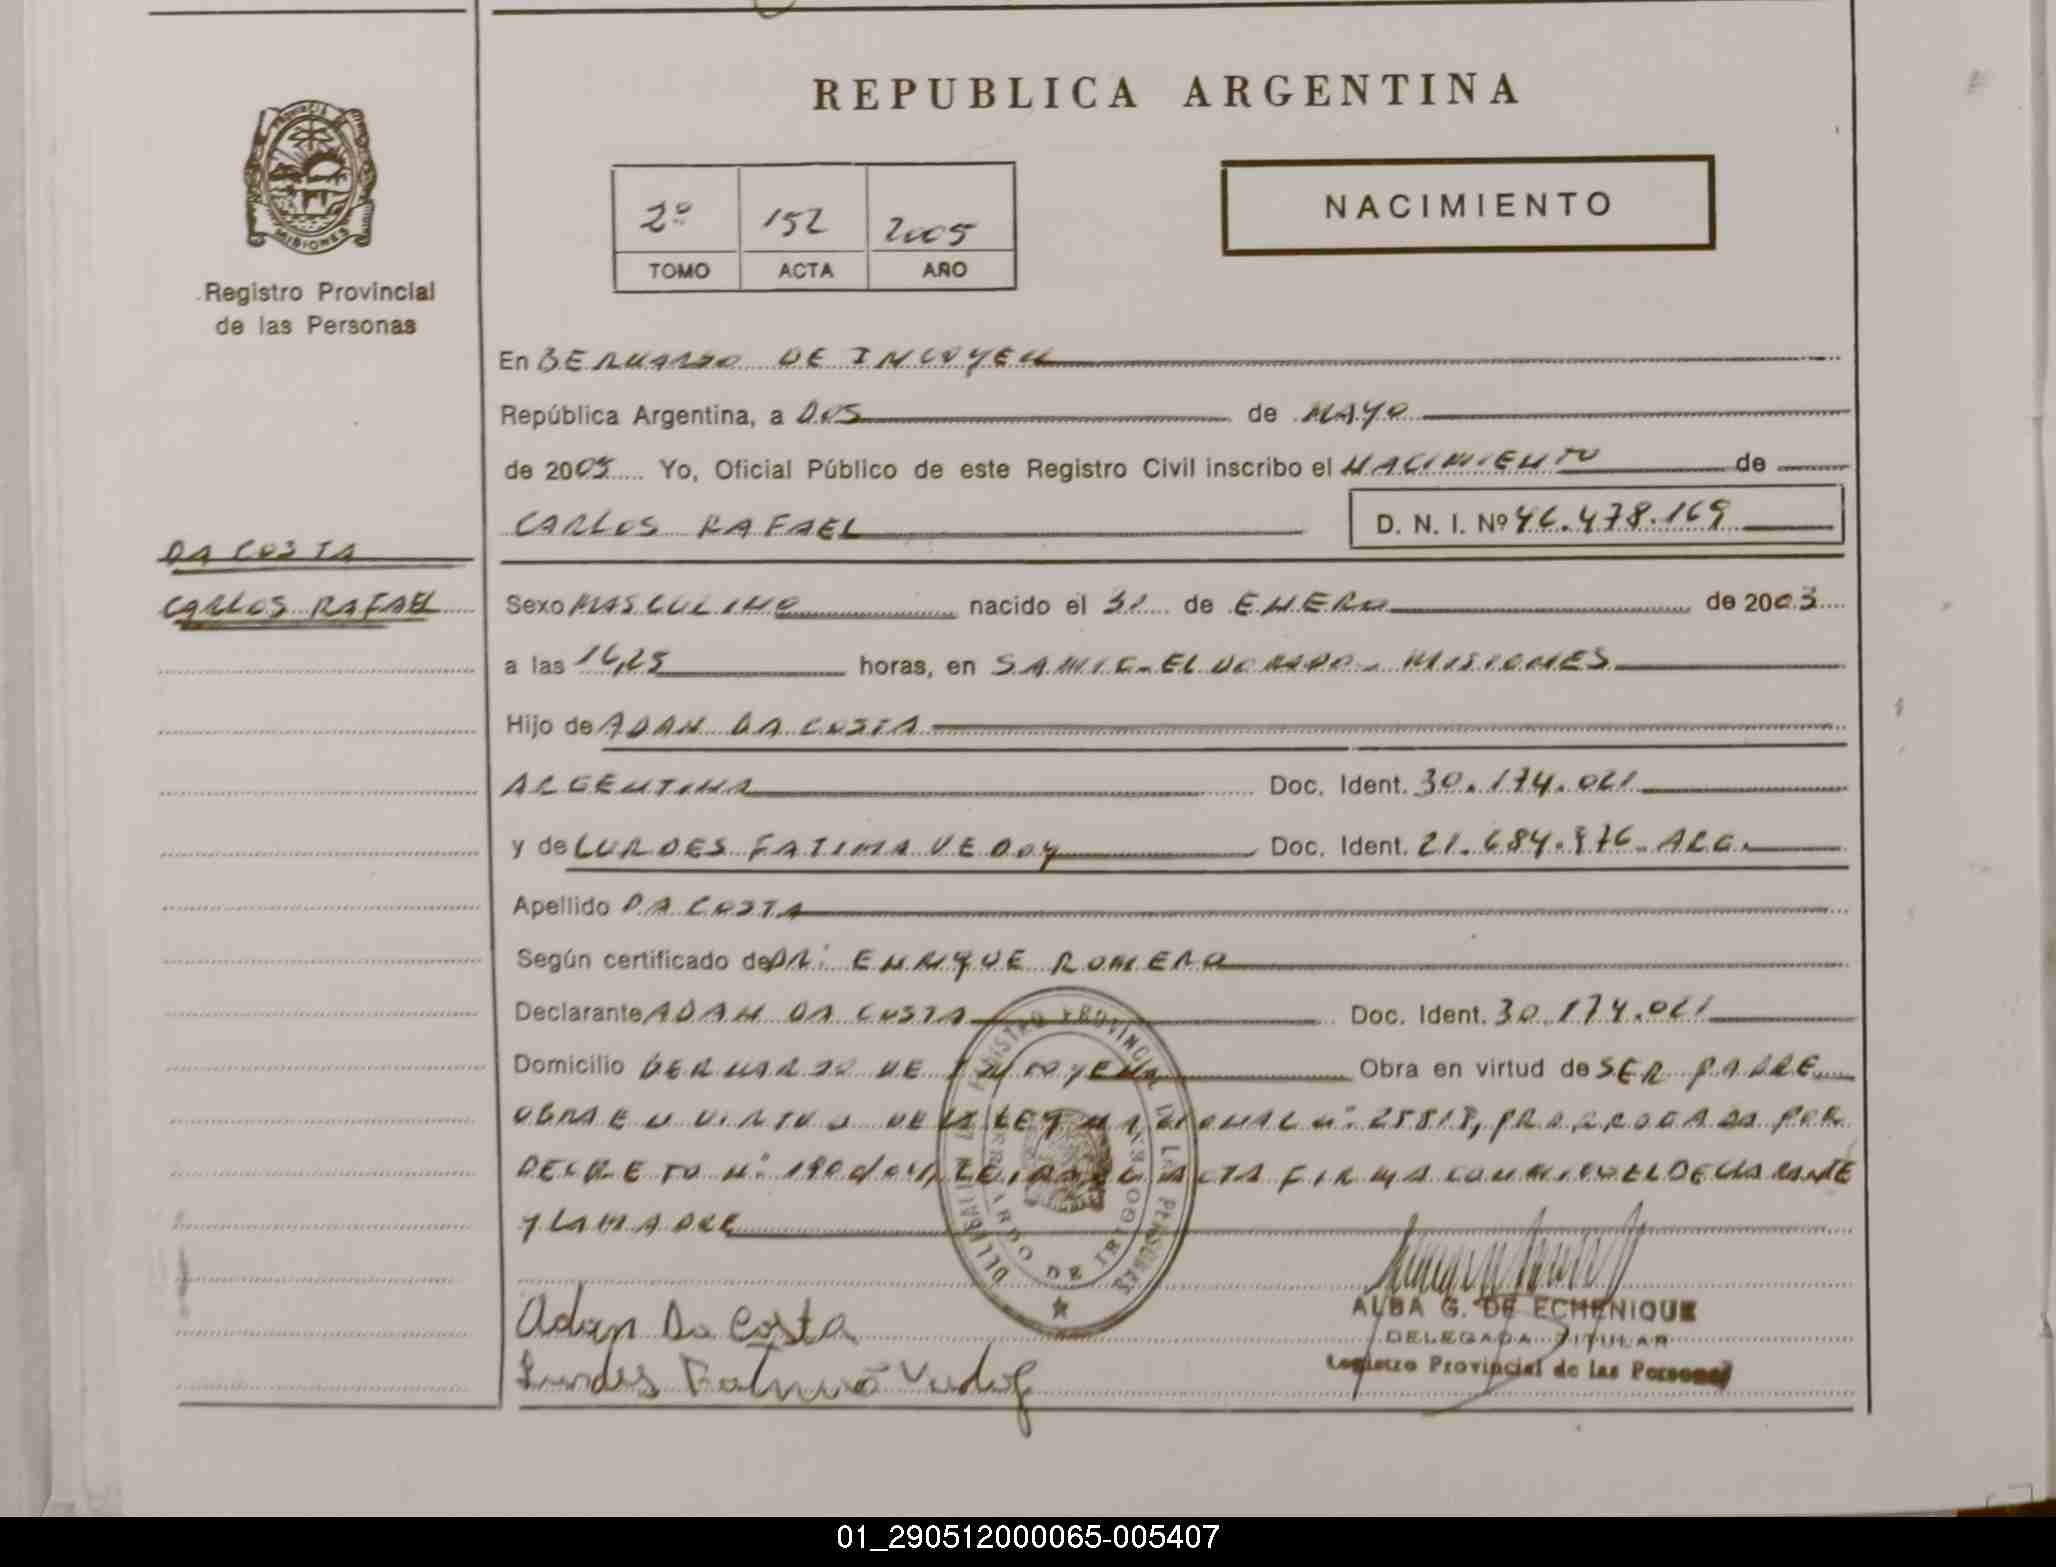 REPUBLICA ARGENTINA
PROVINCIA DE
MISIONES
Registro Provincial
de las Personas
2º 152 2005
TOMO ACTA AÑO
NACIMIENTO
En BERNARDO DE IRIGOYEN
República Argentina, a DOS de MAYO
de 2005 Yo, Oficial Público de este Registro Civil inscribo el NACIMIENTO de
CARLOS RAFAEL D. N. I. Nº 46.478.169
DA COSTA
CARLOS RAFAEL
Sexo MASCULINO nacido el 31 de ENERO de 2003
a las 16,25 horas, en SAMIC-ELDORADO-MISIONES
Hijo de ADAN DA COSTA
ARGENTINA Doc. Ident. 30.174.061
y de LURDES FATIMA VEDOY Doc. Ident. 21.684.976 ARG.
Apellido DA COSTA
Según certificado de DR: ENRIQUE ROMERO
Declarante ADAN DA COSTA Doc. Ident. 30.174.061
Domicilio BERNARDO DE IRIGOYEN Obra en virtud de SER PADRE
OBRA EN VIRTUD DE LA LEY NACIONAL Nº 25818, PRORROGADO POR
DECRETO Nº 190 /04, LEIDA EL ACTA FIRMA CONMIGO EL DECLARANTE
Y LA MADRE
REGISTRO PROVINCIAL DE LAS PERSONAS
BERNARDO DE IRIGOYEN
Adan Da Costa
Lurdes Fatima Vedoy
ALBA G. DE ECHENIQUE
DELEGADA TITULAR
Registro Provincial de las Personas
01_290512000065-005407